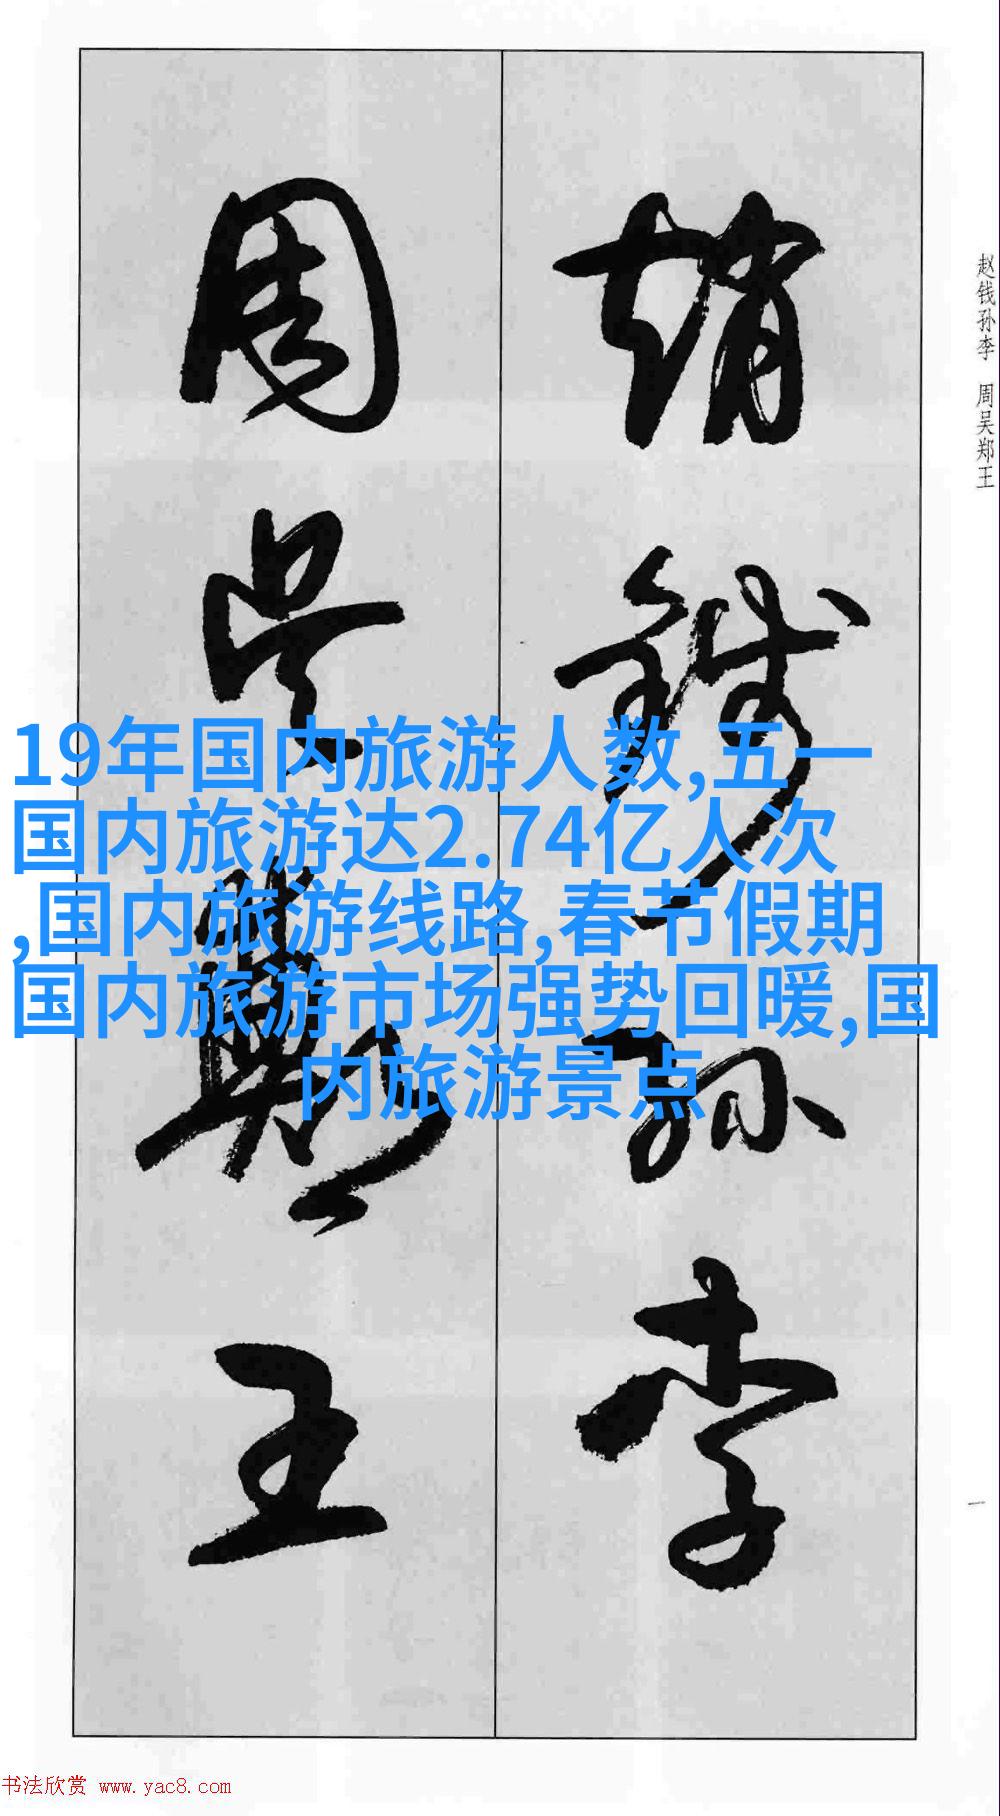 赵钱孙李 周吴郑王
趙錢孫李
周吳鄭王
19年国内旅游人数,五一
国内旅游达2.74亿人次
,国内旅游线路,春节假期
国内旅游市场强势回暖,国
内旅游景点
一
书法欣赏 www.yac8.com